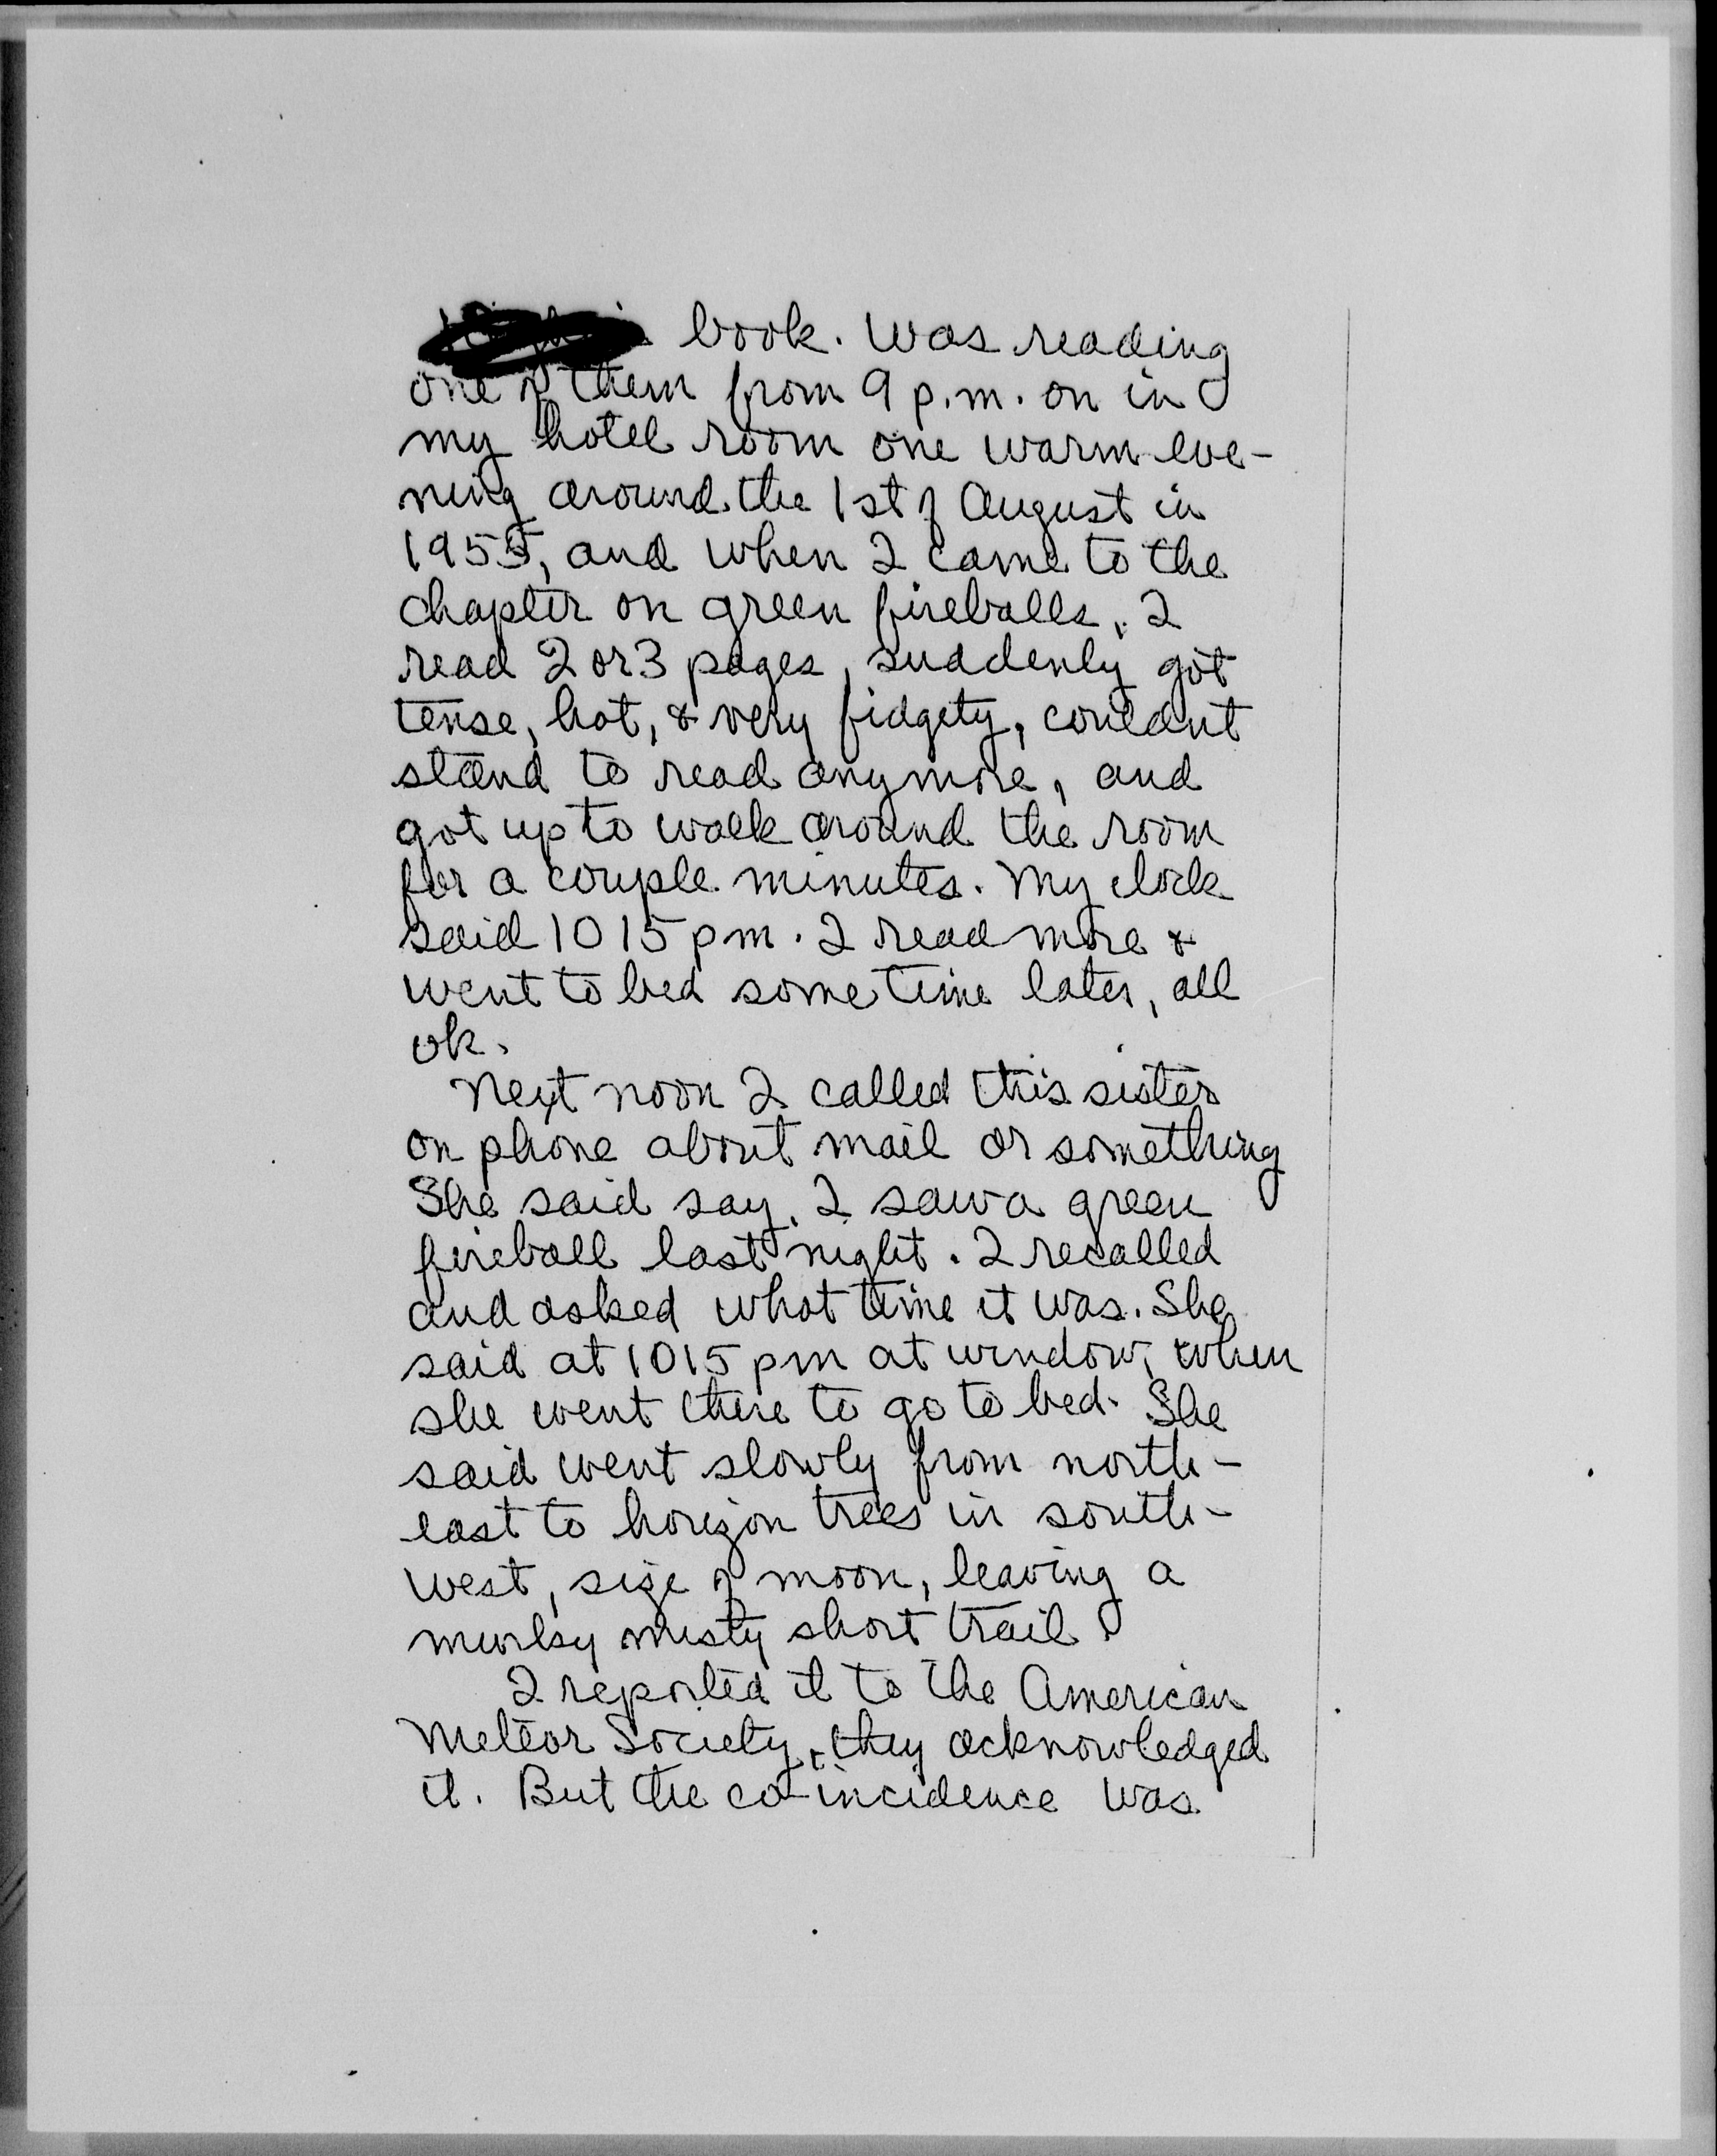 book. Was reading
one of them from 9 p.m. on in
my hotel room one warm eve-
ning around the 1st of August in
1955, and when I came to the
chapter on green fireballs, I
read 2 or 3 pages, suddenly got
tense, hot, & very fidgety, couldnt
stand to read anymore, and
got up to walk around the room
for a couple minutes. My clock
said 1015 pm. I read more &
went to bed some time later, all
ok.
Next noon I called this sister
on phone about mail or something
She said say, I saw a green
fireball last night. I recalled
and asked what time it was. She
said at 1015 pm at window, when
she went there to go to bed. She
said went slowly from north-
east to horizon trees in south-
west, size of moon, leaving a
murky misty short trail.
I reported it to the American
Meteor Society, they acknowledged
it. But the co-incidence was